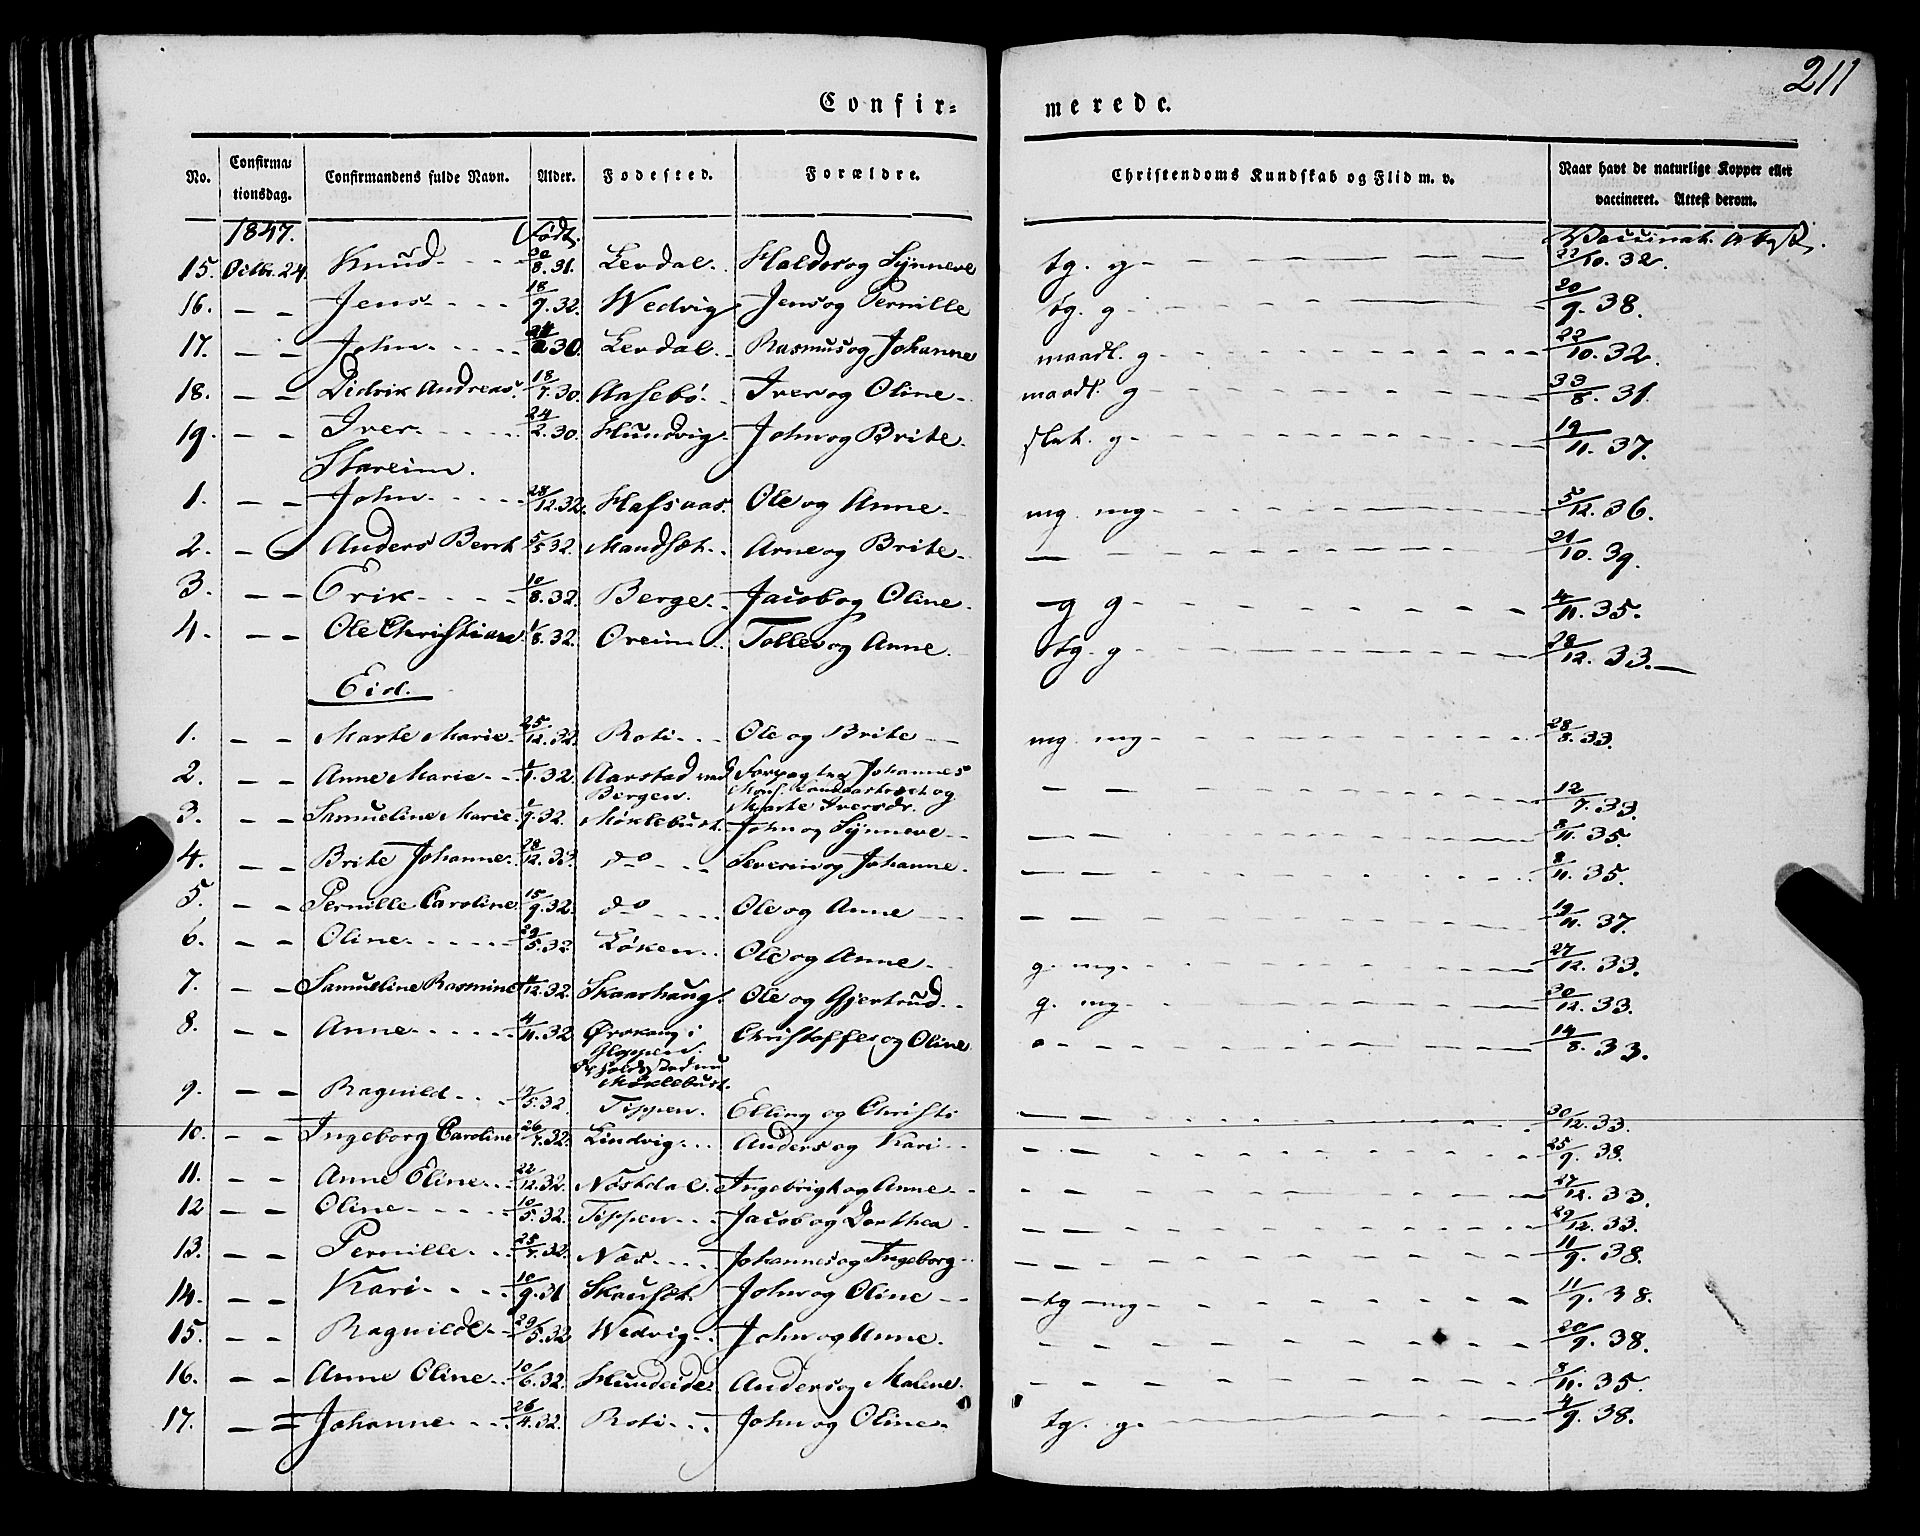 211
Confir= merede.
No. Confirma= tionsdag. Confirmandens fulde Navn. Alder. Fodested. Forældre. Christendoms Kundskab og Flid m. v. Naar havt de naturlige Kopper eller vaccineret. Attest derom.
1847. Født. Vaccinat. Attest.
15. Octbr. 24. Knud 20/8. 31. Levdal. Haldor og Synneve tg. g 22/10. 32.
16. — — Jens 18/9. 32. Wedvig Jens og Pernille tg. g 20/9. 38.
17. — — John 30. Levdal. Rasmus og Johanne maadl. g 22/10. 32.
18. — — Didrik Andreas. 18/7. 30. Aasebö. Iver og Oline maadl. g /8. 31.
19. — — Iver 24/2. 30. Hundvig. John og Brite slet. g 19/11. 37.
Stareim.
1. — — John 28/12. 32. Hafsaas. Ole og Anne mg. mg 5/12. 36.
2. — — Anders Bernt 5/5 32. Mandsæt. Arne og Brite — — 21/10. 39.
3. — — Erik 10/8. 32. Berge Jacob og Oline g g 4/11. 35.
4. — — Ole Christian 1/8. 32. Oreim Tollev og Anne tg. g 28/12. 33.
Eid.
1. — — Marte Marie 25/12. 32. Roti Ole og Brite mg. mg 28/8. 33.
2. — — Anne Marie /1. 32. Aarstad ved Bergen. Forpagter Johannes Mons. og Marte Iversdr. — — 12/7. 33.
3. — — Samueline Marie 1/9. 32. Møklebust. John og Synneve — — 8/11. 35.
4. — — Brite Johanne 28/12. 32. do Severin og Johanne — — 8/11. 35.
5. — — Pernille Caroline 15/9. 32. do Ole og Anne — — 19/11. 37.
6. — — Oline 29/5. 32. Løken Ole og Anne g. mg. 27/12. 33.
7. — — Samueline Rasmine /12. 32. Skaarhaug. Ole og Gjertrud g. mg 30/12. 33.
8. — — Anne 4/11. 32. i Gloppen. nu Møklebust. Christoffer og Oline 14/8. 33.
9. — — Ragnild /5. 32. Tippen. Elling og Christi — — 30/12. 33.
10. — — Ingeborg Caroline 26/7. 32. Lindvig Anders og Kari — — 25/9. 38.
11. — — Anne Oline 22/12. 32. Nøstdal. Ingebrigt og Anne — — 27/12. 33.
12 — — Oline 10/5. 32. Tippen Jacob og Dorthea — — 29/12. 33.
13. — — Pernille 25/7. 32. Nos Johannes og Ingeborg — — 11/9. 38.
14. — — Kari 10/9. 31 Skausæt. John og Oline tg — mg 11/9. 38.
15. — — Ragnilde 29/5. 32 Wedvig John og Anne. — — 20/9. 38.
16. — — Anne Oline 10/6. 32. Hundeide Anders og Malene — — 8/11. 35.
17. — — Johanne 26/4. 32. Roti John og Oline tg. g 4/9. 38.